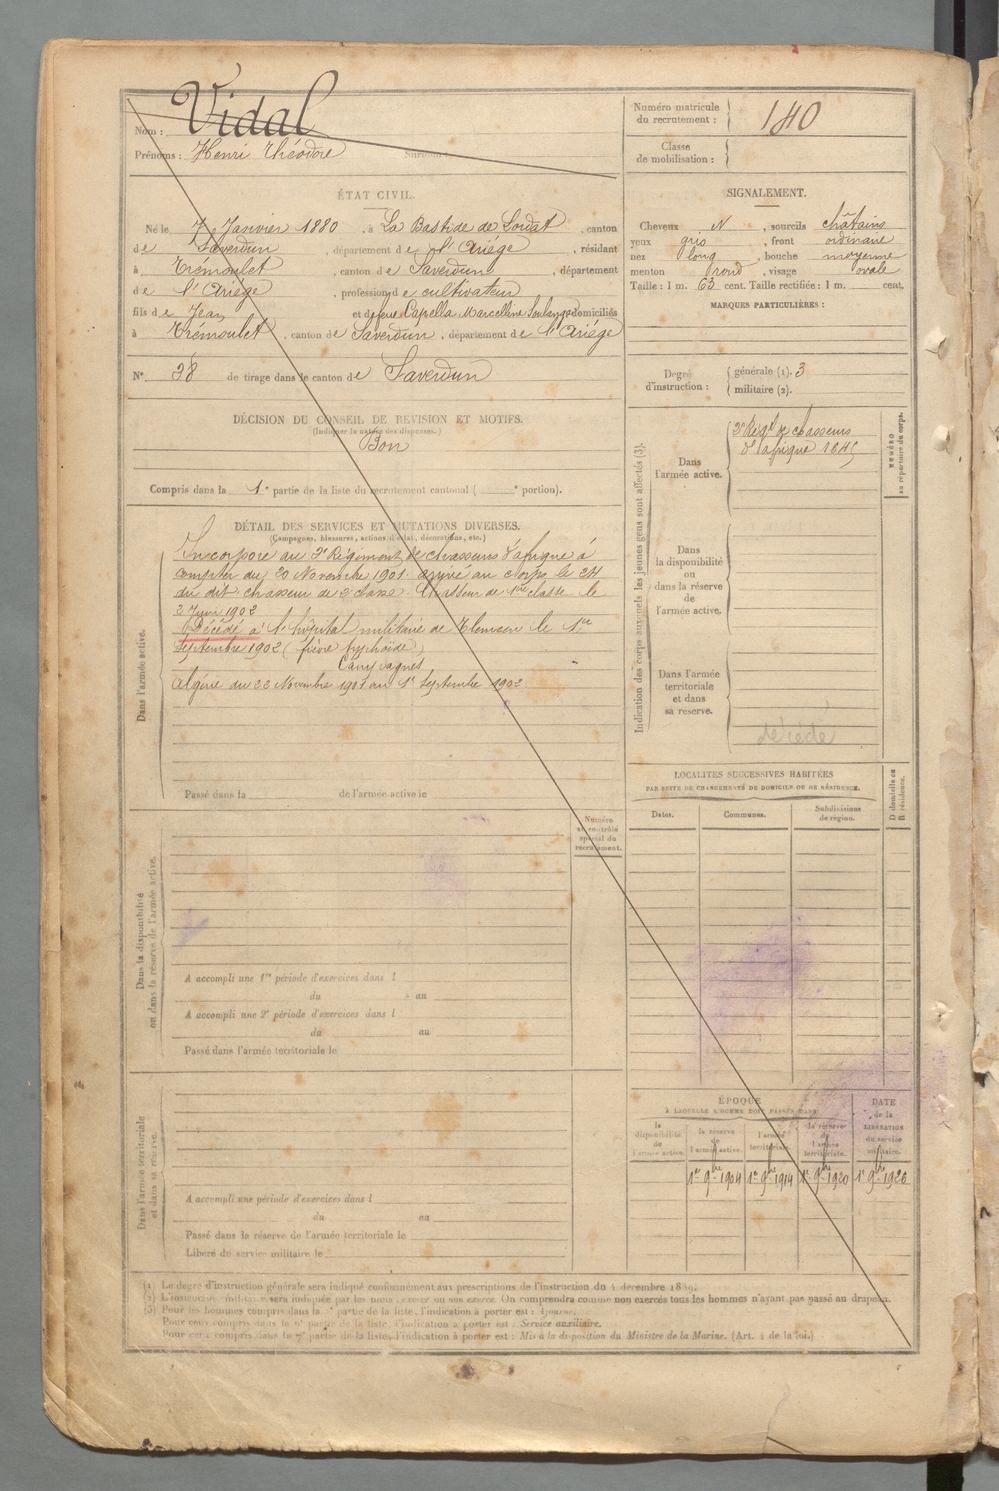 Nom : Vidal
Prénoms : Henri Théodore Surnom :
Numéro matricule du recrutement : 140
Classe de mobilisation :
ÉTAT CIVIL.
Né le 7 Janvier 1880, à La Bastide de Lordat, canton
de Saverdun, département de l'Ariège, résidant
à Trémoulet, canton de Saverdun, département
de l'Ariège, profession de cultivateur
fils de Jean et de feue Capella Marcelline Solange domiciliés
à Trémoulet, canton de Saverdun, département de l'Ariège
N° 38 de tirage dans le canton de Saverdun
SIGNALEMENT.
Cheveux N, sourcils châtains
yeux gris, front ordinaire
nez long, bouche moyenne
menton rond, visage ovale
Taille : 1 m. 63 cent. Taille rectifiée : 1 m. cent.
MARQUES PARTICULIÈRES :
Degré d'instruction : générale (1). 3
militaire (2).
DÉCISION DU CONSEIL DE REVISION ET MOTIFS.
(Indiquer la nature des dispenses.)
Bon
Compris dans la 1e partie de la liste du recrutement cantonal ( e portion).
DÉTAIL DES SERVICES ET MUTATIONS DIVERSES.
(Campagnes, blessures, actions d'éclat, décorations, etc.)
Dans l'armée active.
Incorporé au 2e Régiment de chasseurs d'afrique à
compter du 20 Novembre 1901. arrivé au corps le 24
du dit chasseur de 2e classe. Chasseur de 1ère classe le
2 Juin 1902
Décédé à l'hôpital militaire de Tlemcen le 1er
Septembre 1902 (fièvre typhoïde)
Campagnes
Algérie du 22 Novembre 1901 au 1er Septembre 1902
Passé dans la de l'armée active le
Indication des corps auxquels les jeunes gens sont affectés (3).
NUMÉRO au répertoire du corps.
Dans l'armée active.
2e Régt de chasseurs
d'afrique 1645
Dans la disponibilité ou dans la réserve de l'armée active.
Dans l'armée territoriale et dans sa réserve.
décédé
LOCALITÉS SUCCESSIVES HABITÉES
PAR SUITE DE CHANGEMENTS DE DOMICILE OU DE RÉSIDENCE.
D domicile ou R résidence.
Dates. Communes. Subdivisions de région.
Numéro au contrôle spécial du recrutement.
Dans la disponibilité ou dans la réserve de l'armée active.
A accompli une 1re période d'exercices dans l
du au
A accompli une 2e période d'exercices dans l
du au
Passé dans l'armée territoriale le
Dans l'armée territoriale et dans sa réserve.
A accompli une période d'exercices dans l
du au
Passé dans la réserve de l'armée territoriale le
Libéré du service militaire le
ÉPOQUE
À LAQUELLE L'HOMME DOIT PASSER DANS
DATE de la LIBÉRATION du service militaire.
la disponibilité de l'armée active.
la réserve de l'armée active.
l'armée territoriale.
la réserve de l'armée territoriale.
1er 9bre 1904 1er 9bre 1914 1er 9bre 1920 1er 9bre 1926
(1) Le degré d'instruction générale sera indiqué conformément aux prescriptions de l'instruction du 4 décembre 1889.
(2) L'instruction militaire sera indiquée par les mots exercé ou non exercé. On comprendra comme non exercés tous les hommes n'ayant pas passé au drapeau.
(3) Pour les hommes compris dans la partie de la liste, l'indication à porter est : Ajourné.
Pour ceux compris dans la partie de la liste, l'indication à porter est : Service auxiliaire.
Pour ceux compris dans la 7e partie de la liste, l'indication à porter est : Mis à la disposition du Ministre de la Marine. (Art. 4 de la loi.)